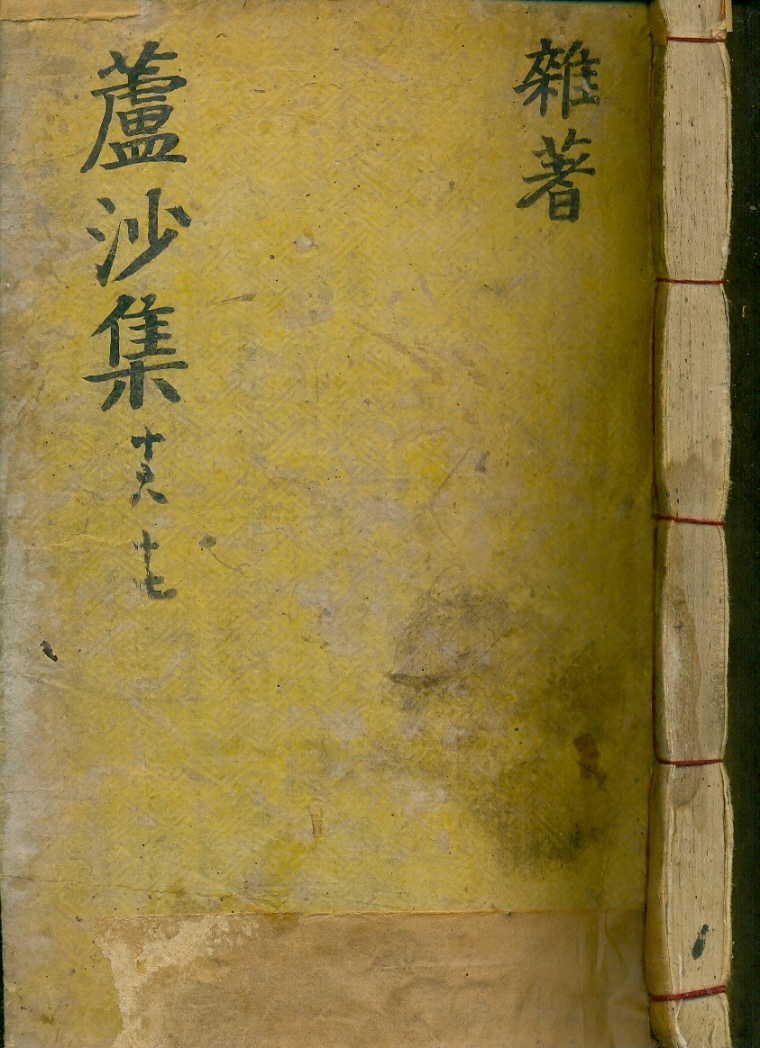 雜著
蘆沙集
十六
十七